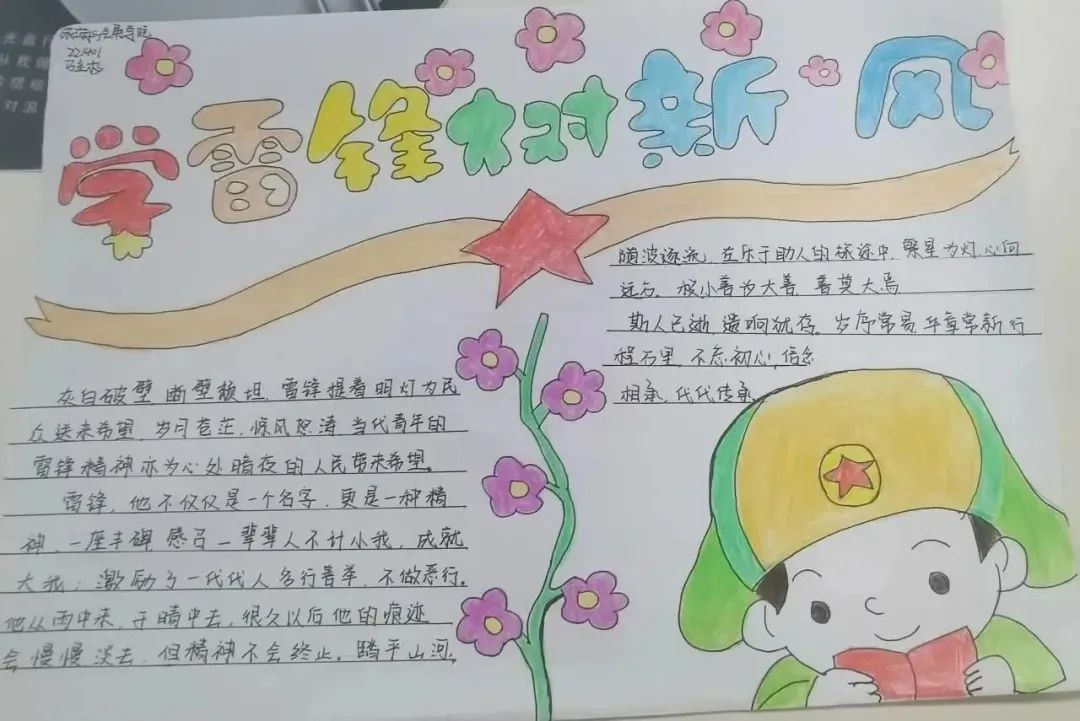 221401
学雷锋树新风
灰白破壁 断壁颓垣,雷锋提着明灯为民
众送来希望,岁月苍茫,惊风怒涛 当代青年的
雷锋精神亦为心处暗夜的人民带来希望。
雷锋,他不仅仅是一个名字,更是一种精
神,一座丰碑 感召一辈辈人不计小我,成就
大我;激励了一代代人多行善举,不做恶行。
他从雨中来,于晴中去,很久以后他的痕迹
会慢慢淡去,但精神不会终止。踏平山河,
随波逐流,在乐于助人的旅途中,繁星为灯心向
远方,积小善为大善 善莫大焉
斯人已逝,遗响犹存。岁序常易 华章常新 行
程万里,不忘初心,信念
相承,代代传承